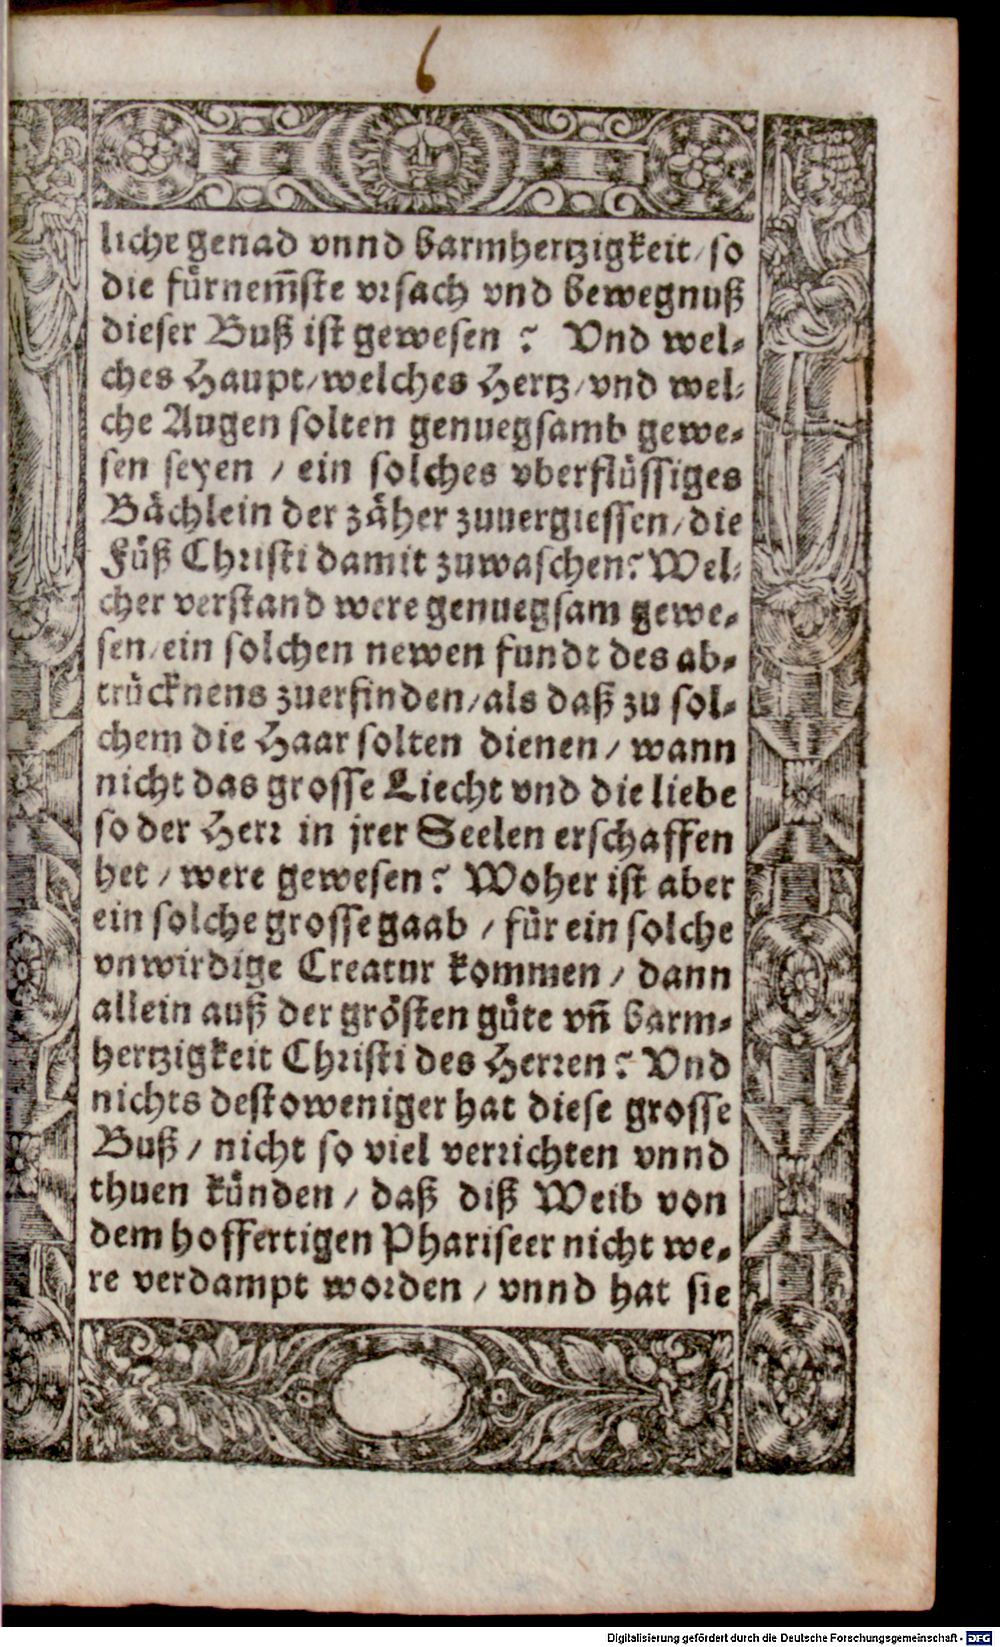 6
liche genad vnnd barmhertzigkeit / so
die fürnem̄ste vrsach vnd bewegnuß
dieser Buß ist gewesen? Vnd wel-
ches Haupt / welches Hertz / vnd wel-
che Augen solten genuegsamb gewe-
sen seyen / ein solches vberflüssiges
Bächlein der zäher zuuergiessen / die
Füß Christi damit zuwaschen? Wel-
cher verstand were genuegsam gewe-
sen / ein solchen newen fundt des ab-
trücknens zuerfinden / als daß zu sol-
chem die Haar solten dienen / wann
nicht das grosse Liecht vnd die liebe
so der Herr in jrer Seelen erschaffen
het / were gewesen? Woher ist aber
ein solche grosse gaab / für ein solche
vnwirdige Creatur kommen / dann
allein auß der grösten güte vn̄ barm-
hertzigkeit Christi des Herren? Vnd
nichts destoweniger hat diese grosse
Buß / nicht so viel verrichten vnnd
thuen künden / daß diß Weib von
dem hoffertigen Phariseer nicht we-
re verdampt worden / vnnd hat sie
Digitalisierung gefördert durch die Deutsche Forschungsgemeinschaft - DFG